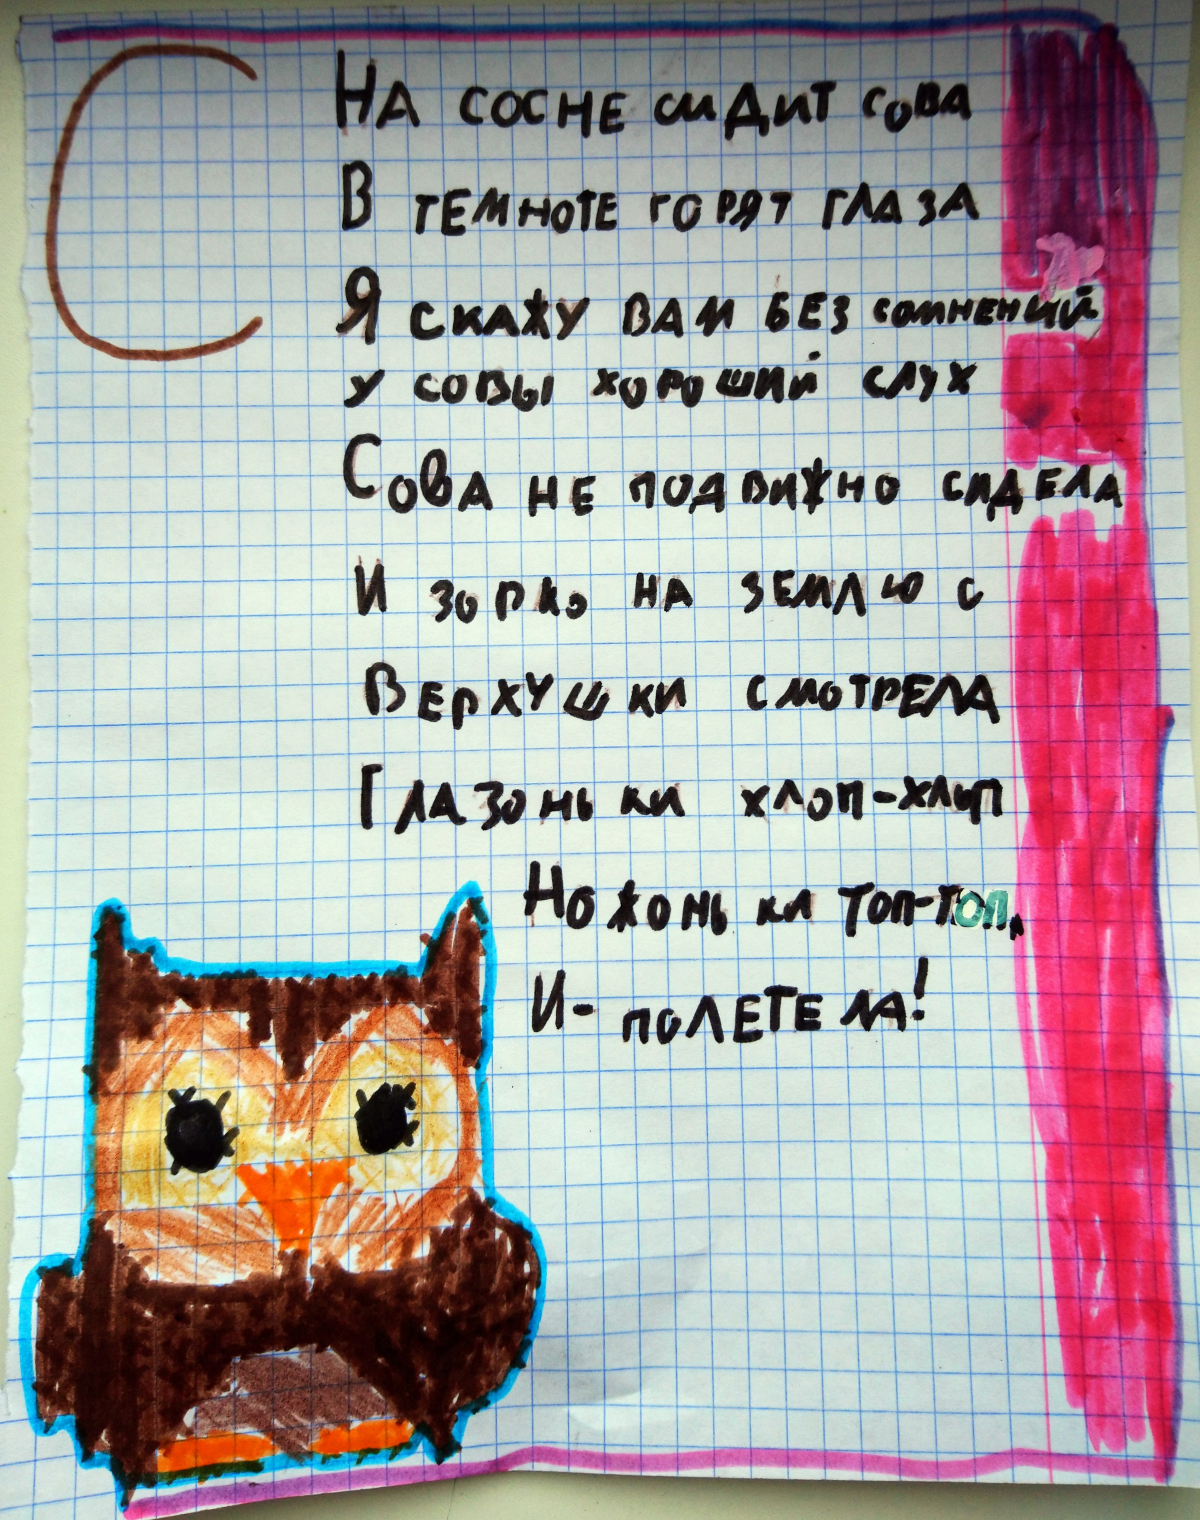 С
На сосне сидит сова
В темноте горят глаза
Я скажу вам без сомнений
у совы хороший слух
Сова не подвижно сидела
И зорко на землю с
Верхушки смотрела
Глазоньки хлоп-хлоп
Ножоньки топ-топ,
И- полетела!